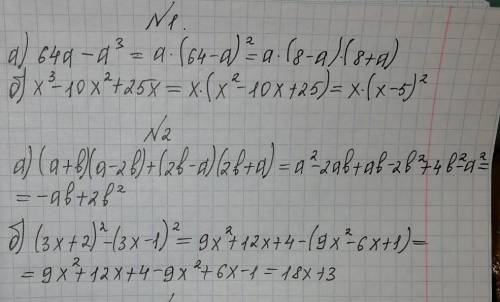 №1.
а) 64a-a³ = a·(64-a)²= a·(8-a)·(8+a)
б) x³-10x²+25x = x·(x²-10x+25)= x·(x-5)²
№2
а) (a+b)(a-2b)+(2b-a)(2b+a)= a²-2ab+ab-2b²+4b²-a²=
= -ab+2b²
б) (3x+2)²-(3x-1)² = 9x²+12x+4-(9x²-6x+1)=
= 9x²+12x+4-9x²+6x-1 = 18x+3